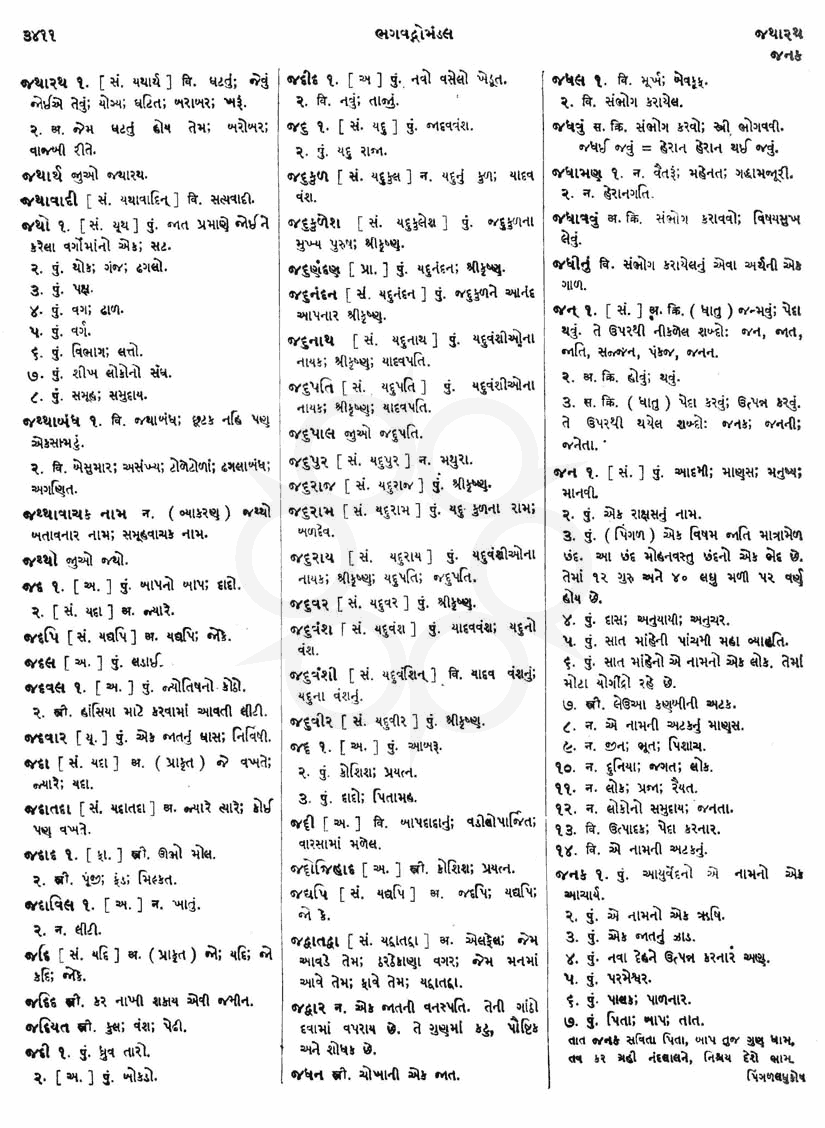 ૩૪૧૧
ભગવદ્ગોમંડલ
જથારથ
જનક
જથારથ ૧. [ સં. યથાર્થ ] વિ. ઘટતું; જેવું
જોઈએ તેવું; યોગ્ય; ઘટિત; બરાબર; ખરૂં.
૨. અ. જેમ ઘટતું હોય તેમ; બરોબર;
વાજબી રીતે.
જથાર્થ જુઓ જથારથ.
જથાવાદી [ સં. યથાવાદિન્ ] વિ. સત્યવાદી.
જથો ૧. [ સં. યૂથ ] પું. જાત પ્રમાણે જોઈને
કરેલા વર્ગોમાંનો એક; સટ.
૨. પું. થોક; ગંજ; ઢગલો.
૩. પું. પક્ષ.
૪. પું. વગ; ઢાળ.
૫. પું. વર્ગ.
૬. પું. વિભાગ; લત્તો.
૭. પું. શીખ લોકોનો સંઘ.
૮. પું. સમૂહ; સમુદાય.
જથ્થાબંધ ૧. વિ. જથાબંધ; છૂટક નહિ પણ
એકસામટું.
૨. વિ. બેસુમાર; અસંખ્ય; ટોળેટોળાં; ઢગલાબંધ;
અગણિત.
જથ્થાવાચક નામ ન. ( વ્યાકરણ ) જથ્થો
બતાવનાર નામ; સમૂહવાચક નામ.
જથ્થો જુઓ જથો.
જદ ૧. [ અ. ] પું. બાપનો બાપ; દાદો.
૨. [ સં. યદા ] અ. જ્યારે.
જદપિ [ સં. યદ્યપિ ] અ. યદ્યપિ; જોકે.
જદલ [ અ. ] પું. લડાઈ.
જદવલ ૧. [ અ. ] પું. જ્યોતિષનો કોઠો.
૨. સ્ત્રી. હાંસિયા માટે કરવામાં આવતી લીટી.
જદવાર [ યૂ. ] પું. એક જાતનું ઘાસ; નિર્વિષી.
જદા [ સં. યદા ] અ. ( પ્રાકૃત ) જે વખતે;
જ્યારે; યદા.
જદાતદા [ સં. યદાતદા ] અ. જ્યારે ત્યારે; કોઈ
પણ વખતે.
જદાદ ૧. [ ફા. ] સ્ત્રી. ઊભો મોલ.
૨. સ્ત્રી. પૂંજી; ફંડ; મિલ્કત.
જદાવિલ ૧. [ અ. ] ન. ખાતું.
૨. ન. લીટી.
જદિ [ સં. યદિ ] અ. ( પ્રાકૃત ) જો; યદિ; જો
કદિ; જોકે.
જદિદ સ્ત્રી. કર નાખી શકાય એવી જમીન.
જદિયત સ્ત્રી. કુલ; વંશ; પેઢી.
જદી ૧. પું. ધ્રુવ તારો.
૨. [ અ. ] પું. બોકડો.
જદીદ ૧. [ અ ] પું. નવો વસેલો ખેડૂત.
૨. વિ. નવું; તાજું.
જદુ ૧. [ સં. યદુ ] પું. જાદવવંશ.
૨. પું. યદુ રાજા.
જદુકુળ [ સં. યદુકુલ ] ન. યદુનું કુળ; યાદવ
વંશ.
જદુકુળેશ [ સં. યદુકુલેશ ] પું. જદુકુળના
મુખ્ય પુરુષ; શ્રીકૃષ્ણ.
જદુણંદણ [ પ્રા. ] પું. યદુનંદન; શ્રીકૃષ્ણ.
જદુનંદન [ સં. યદુનંદન ] પું. જદુકુળને આનંદ
આપનાર શ્રીકૃષ્ણ.
જદુનાથ [ સં. યદુનાથ ] પું. યદુવંશીઓના
નાયક; શ્રીકૃષ્ણ; યાદવપતિ.
જદુપતિ [ સં. યદુપતિ ] પું. યદુવંશીઓના
નાયક; શ્રીકૃષ્ણ; યાદવપતિ.
જદુપાલ જુઓ જદુપતિ.
જદુપુર [ સં. યદુપુર ] ન. મથુરા.
જદુરાજ [ સં. યદુરાજ ] પું. શ્રીકૃષ્ણ.
જદુરામ [ સં. યદુરામ ] પું. યદુ કુળના રામ;
બળદેવ.
જદુરાય [ સં. યદુરાય ] પું. યદુવંશીઓના
નાયક; શ્રીકૃષ્ણ; યદુપતિ; જદુપતિ.
જદુવર [ સં. યદુવર ] પું. શ્રીકૃષ્ણ.
જદુવંશ [ સં. યદુવંશ ] પું. યાદવવંશ; યદુનો
વંશ.
જદુવંશી [ સં. યદુવંશિન્ ] વિ. યાદવ વંશનું;
યદુના વંશનું.
જદુવીર [ સં. યદુવીર ] પું. શ્રીકૃષ્ણ.
જદ્દ ૧. [ અ. ] પું. આબરૂ.
૨. પું. કોશિશ; પ્રયત્ન.
૩. પું. દાદો; પિતામહ.
જદ્દી [ અ. ] વિ. બાપદાદાનું; વડીલોપાર્જિત;
વારસામાં મળેલ.
જદ્દોજિહાદ [ અ. ] સ્ત્રી. કોશિશ; પ્રયત્ન.
જદ્યપિ [ સં. યદ્યપિ ] અ. જદપિ; યદ્યપિ;
જો કે.
જદ્વાતદ્વા [ સં. યદ્વાતદ્વા ] અ. એલફેલ; જેમ
આવડે તેમ; ઠરઠેકાણા વગર; જેમ મનમાં
આવે તેમ; ફાવે તેમ; યદ્વાતદ્વા.
જદ્વાર ન. એક જાતની વનસ્પતિ. તેની ગાંઠો
દવામાં વપરાય છે. તે ગુણમાં કટુ, પૌષ્ટિક
અને શોધક છે.
જધન સ્ત્રી. ચોખાની એક જાત.
જધલ ૧. વિ. મૂર્ખ; બેવકૂફ.
૨. વિ. સંભોગ કરાયેલ.
જધવું સ. ક્રિ. સંભોગ કરવો; સ્ત્રી ભોગવવી.
જધઈ જવું = હેરાન હેરાન થઈ જવું.
જધામણ ૧. ન. વૈતરૂં; મહેનત; ગદ્ધામજૂરી.
૨. ન. હેરાનગતિ.
જધાવવું અ. ક્રિ. સંભોગ કરાવવો; વિષયસુખ
લેવું.
જધીનું વિ. સંભોગ કરાયેલનું એવા અર્થની એક
ગાળ.
જન્ ૧. [ સં. ] અ. ક્રિ. ( ધાતુ ) જન્મવું; પેદા
થવું. તે ઉપરથી નીકળેલ શબ્દો: જન, જાત,
જાતિ, સજ્જન, પંકજ, જનન.
૨. અ. ક્રિ. હોવું; થવું.
૩. સ. ક્રિ. ( ધાતુ ) પેદા કરવું; ઉત્પન્ન કરવું.
તે ઉપરથી થયેલ શબ્દો: જનક; જનની;
જનેતા.
જન ૧. [ સં. ] પું. આદમી; માણસ; મનુષ્ય;
માનવી.
૨. પું. એક રાક્ષસનું નામ.
૩. પું. ( પિંગળ ) એક વિષમ જાતિ માત્રામેળ
છંદ. આ છંદ મોહનવસ્તુ છંદનો એક ભેદ છે.
તેમાં ૧૨ ગુરુ અને ૪૦ લઘુ મળી ૫૨ વર્ણ
હોય છે.
૪. પું. દાસ; અનુયાયી; અનુચર.
૫. પું. સાત માંહેની પાંચમી મહા વ્યાહૃતિ.
૬. પું. સાત માંહેનો એ નામનો એક લોક. તેમાં
મોટા યોગીંદ્રો રહે છે.
૭. સ્ત્રી. લેઉઆ કણબીની અટક.
૮. ન. એ નામની અટકનું માણસ.
૯. ન. જીન; ભૂત; પિશાચ.
૧૦. ન. દુનિયા; જગત; લોક.
૧૧. ન. લોક; પ્રજા; રૈયત.
૧૨. ન. લોકોનો સમુદાય; જનતા.
૧૩. વિ. ઉત્પાદક; પેદા કરનાર.
૧૪. વિ. એ નામની અટકનું.
જનક ૧. પું. આયુર્વેદનો એ નામનો એક
આચાર્ય.
૨. પું. એ નામનો એક ઋષિ.
૩. પું. એક જાતનું ઝાડ.
૪. પું. નવા દેહને ઉત્પન્ન કરનારં અણુ.
૫. પું. પરમેશ્વર.
૬. પું. પાલક; પાળનાર.
૭. પું. પિતા; બાપ; તાત.
તાત જનક સવિતા પિતા, બાપ તુજ ગુણ ધામ,
તવ કર ગ્રહી નંદલાલને, નિશ્ચય દેશે ભામ.
પિંગળલઘુકોષ